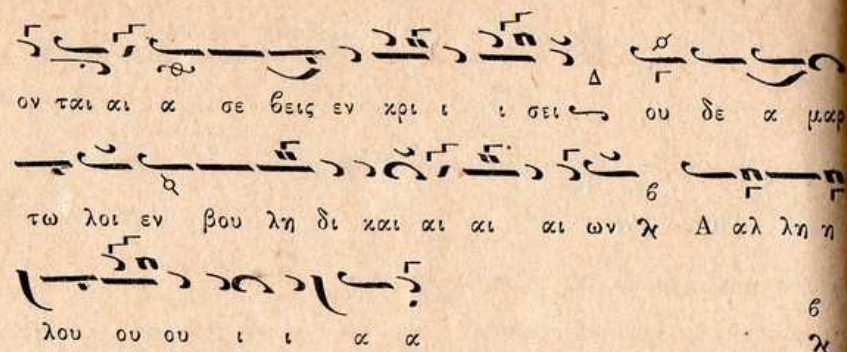 ον ται αι α σε βεις εν κρι ι ι σει ου δε α μαρ
τω λοι εν βου λη δι και αι αι αι ων Α αλ λη η
λου ου ου ι ι α α